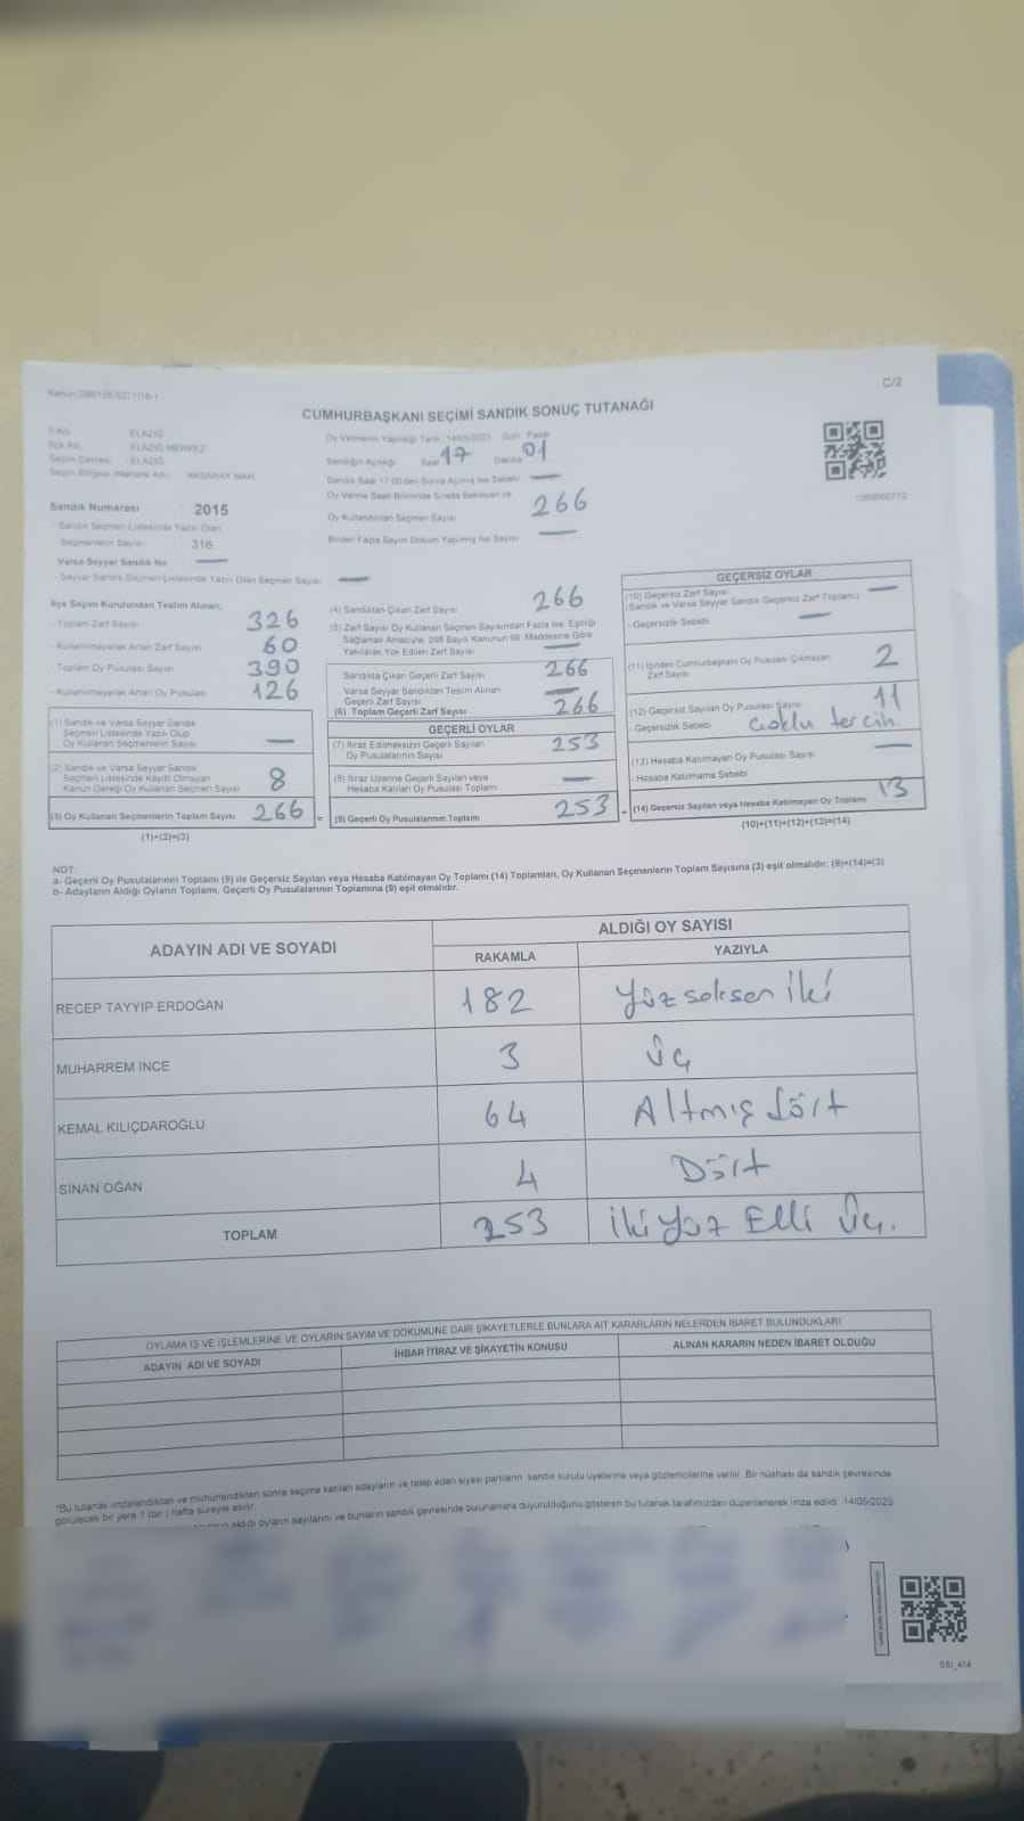 C/2
CUMHURBAŞKANI SEÇİMİ SANDIK SONUÇ TUTANAĞI
İli Adı ELAZIĞ
İlçe Adı ELAZIĞ MERKEZ
Seçim Çevresi ELAZIĞ
Oy Vermenin Yapıldığı Tarih 14/05/2023 Gün Pazar
Sandığın Açıldığı Saat 17 Dakika 01
Sandık Numarası 2015
Oy Kullandırılan Seçmen Sayısı 266
Seçmenlerin Sayısı 316
Varsa Seyyar Sandık No —
Seyyar Sandık Seçmen Listesinde Yazılı Olan Seçmen Sayısı —
İlçe Seçim Kurulundan Teslim Alınan;
Toplam Zarf Sayısı 326
Kullanılmayarak Artan Zarf Sayısı 60
Toplam Oy Pusulası Sayısı 390
Kullanılmayarak Artan Oy Pusulası 126
(1) Sandık ve Varsa Seyyar Sandık
Seçmen Listesinde Yazılı Olup
Oy Kullanan Seçmenlerin Sayısı —
(2) Sandık ve Varsa Seyyar Sandık
Seçmen Listesinde Kayıtlı Olmayan
Kanun Gereği Oy Kullanan Seçmen Sayısı 8
(3) Oy Kullanan Seçmenlerin Toplam Sayısı 266 =
(1)+(2)=(3)
(4) Sandıktan Çıkan Zarf Sayısı 266
(5) Zarf Sayısı Oy Kullanan Seçmen Sayısından Fazla ise, Eşitliği
Sağlamak Amacıyla, 298 Sayılı Kanunun 98. Maddesine Göre
Yakılarak Yok Edilen Zarf Sayısı —
Sandıkta Çıkan Geçerli Zarf Sayısı 266
Varsa Seyyar Sandıktan Teslim Alınan
Geçerli Zarf Sayısı —
(6) Toplam Geçerli Zarf Sayısı 266
GEÇERLİ OYLAR
(7) İtiraz Edilmeksizin Geçerli Sayılan
Oy Pusulalarının Sayısı 253
(8) İtiraz Üzerine Geçerli Sayılan veya
Hesaba Katılan Oy Pusulası Toplamı —
(9) Geçerli Oy Pusulalarının Toplamı 253
GEÇERSİZ OYLAR
(10) Geçersiz Zarf Sayısı
(Sandık ve Varsa Seyyar Sandık Geçersiz Zarf Toplamı) —
Geçersizlik Sebebi —
(11) İçinden Cumhurbaşkanı Oy Pusulası Çıkmayan
Zarf Sayısı 2
(12) Geçersiz Sayılan Oy Pusulası Sayısı 11
Geçersizlik Sebebi çoklu tercih
(13) Hesaba Katılmayan Oy Pusulası Sayısı —
Hesaba Katılmama Sebebi
(14) Geçersiz Sayılan veya Hesaba Katılmayan Oy Toplamı 13
(10)+(11)+(12)+(13)=(14)
NOT:
a- Geçerli Oy Pusulalarının Toplamı (9) ile Geçersiz Sayılan veya Hesaba Katılmayan Oy Toplamı (14) Toplamları, Oy Kullanan Seçmenlerin Toplam Sayısına (3) eşit olmalıdır: (9)+(14)=(3)
b- Adayların Aldığı Oyların Toplamı, Geçerli Oy Pusulalarının Toplamına (9) eşit olmalıdır.
ADAYIN ADI VE SOYADI
ALDIĞI OY SAYISI
RAKAMLA YAZIYLA
RECEP TAYYIP ERDOĞAN 182 Yüz seksen iki
MUHARREM İNCE 3 üç
KEMAL KILIÇDAROĞLU 64 Altmış dört
SİNAN OĞAN 4 Dört
TOPLAM 253 İki yüz Elli Üç.
OYLAMA İŞ VE İŞLEMLERİNE VE OYLARIN SAYIM VE DÖKÜMÜNE DAİR ŞİKAYETLERLE BUNLARA AİT KARARLARIN NELERDEN İBARET BULUNDUKLARI
ADAYIN ADI VE SOYADI
İHBAR İTİRAZ VE ŞİKAYETİN KONUSU
ALINAN KARARIN NEDEN İBARET OLDUĞU
*Bu tutanak imzalandıktan ve mühürlendikten sonra seçime katılan adayların ve talep eden siyasi partilerin sandık kurulu üyelerine veya gözlemcilerine verilir. Bir nüshası da sandık çevresinde
görülecek bir yere 1 (bir) hafta süreyle asılır.
aldığı oyların sayılarını ve bunların sandık çevresinde bulunanlara duyurulduğunu gösteren bu tutanak tarafımızdan düzenlenerek imza edildi. 14/05/2023